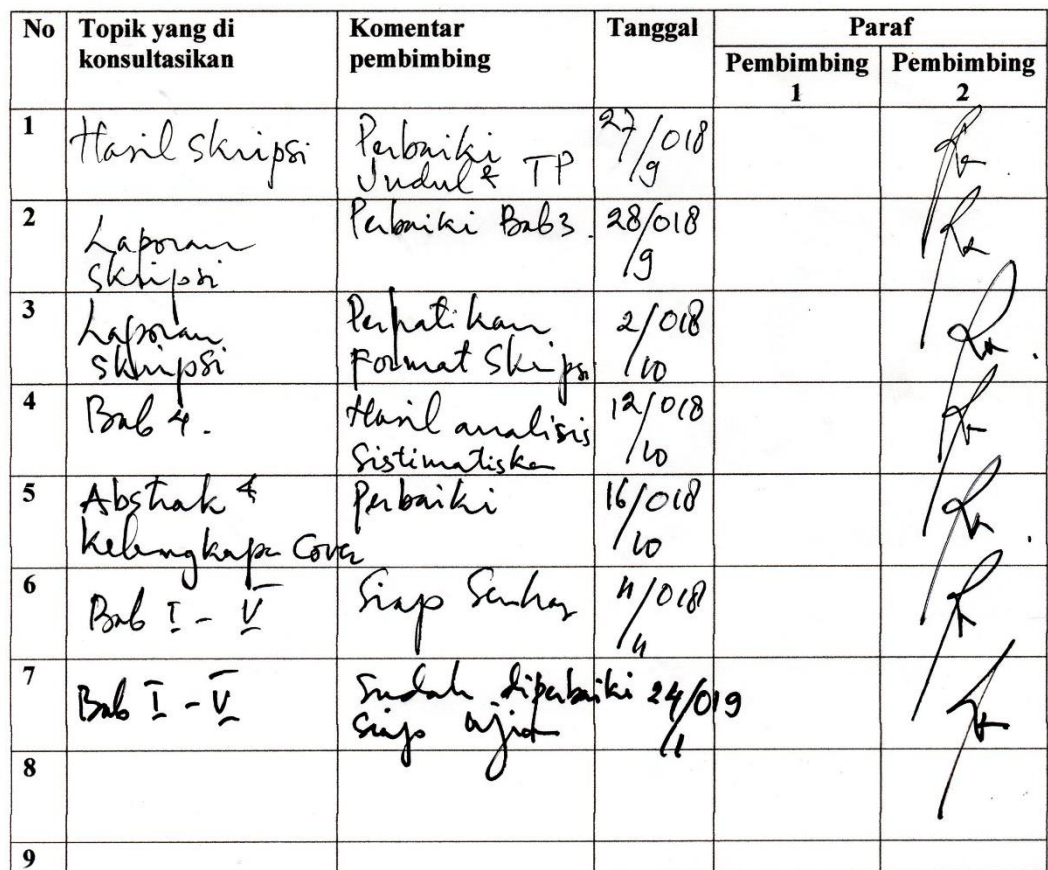 No Topik yang di konsultasikan Komentar pembimbing Tanggal Paraf
Pembimbing 1 Pembimbing 2
1 Hasil Skripsi Perbaiki Judul & TP 27/9 018
2 Laporan Skripsi Perbaiki Bab 3. 28/9 018
3 Laporan Skripsi Perhatikan Format Skripsi 2/10 018
4 Bab 4. Hasil analisis Sistimatiska 12/10 018
5 Abstrak & Kelengkapa Cover Perbaiki 16/10 018
6 Bab I - V Siap Semhas 11/11 018
7 Bab I - V Sudah diperbaiki Siap ujian 24/1 019
8
9